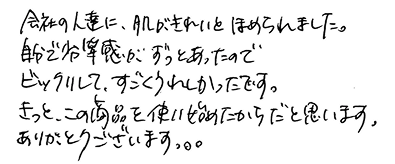 会社の人達に、肌がきれいとほめられました。
自分で劣等感がずっとあったので
ビックリして、すごくうれしかったです。
きっと、この商品を使い始めたからだと思います。
ありがとうございます。。。